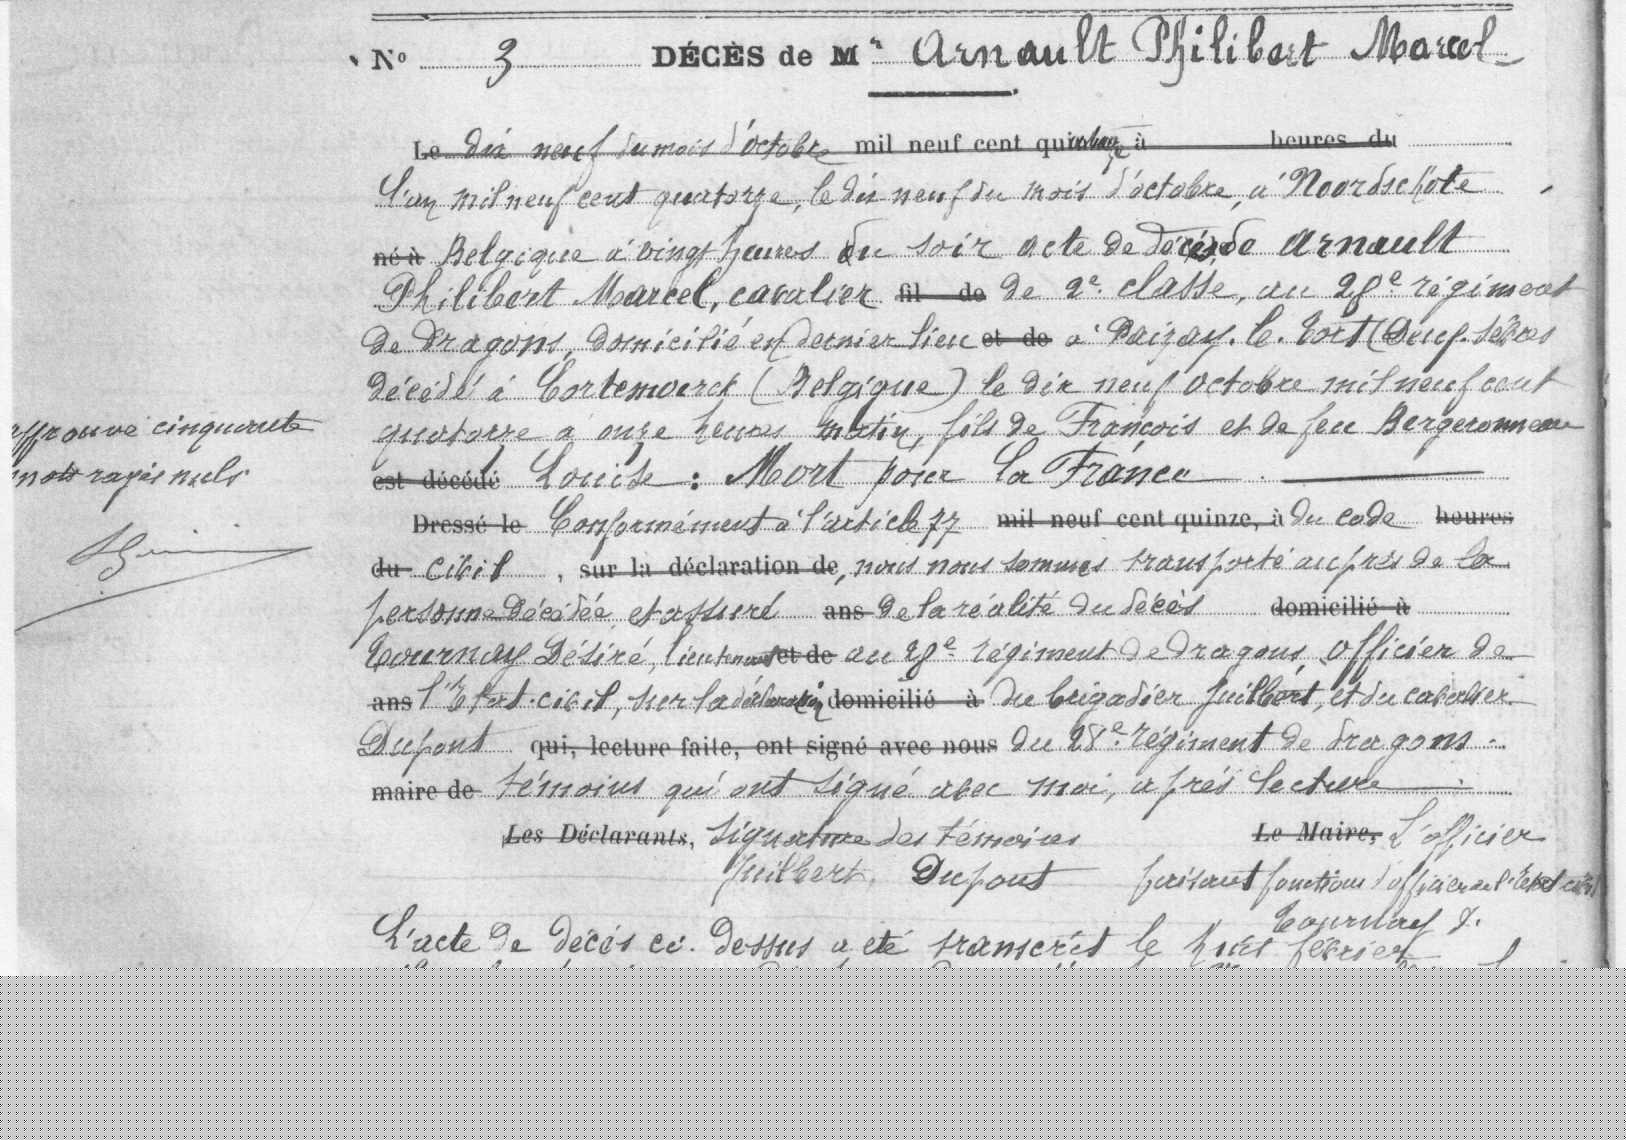 N° 3 DÉCÈS de Mr Arnault Philibert Marcel
Le dix neuf du mois d'octobre mil neuf cent quinze à heures du
L'an mil neuf cent quatorze, le dix neuf du mois d'octobre, à Noordschote
né à Belgique à vingt heures du soir acte de décès de Arnault
Philibert Marcel, cavalier fil de de 2e classe, au 28e régiment
de dragons, domicilié en dernier lieu et de à Paizay-le-Tort (Deux-Sèvres
décédé à Cortemarck (Belgique) le dix neuf octobre mil neuf cent
quatorze à onze heures matin, fils de François et de feu Bergeronneau
est décédé Louise : Mort pour la France
Dressé le Conformément à l'article 77 mil neuf cent quinze, à du code heures
du civil , sur la déclaration de, nous nous sommes transporté auprès de la
personne décédée et assuré ans de la réalité du décès domicilié à
Tournay Désiré, lieutenant et de au 28e régiment de dragons, officier de
ans l'Etat-civil, sur la déclaration domicilié à du brigadier Juilbert, et du cavalier
Dupont qui, lecture faite, ont signé avec nous du 28e régiment de dragons
maire de témoins qui ont signé avec moi, après lecture
Les Déclarants, signature des témoins Le Maire, L'officier
Juilbert, Dupont faisant fonctions d'officier de l'Etat civil
Tournay D.
L'acte de décès ci-dessus a été transcrit le huit février
approuvé cinquante
mots rayés nuls